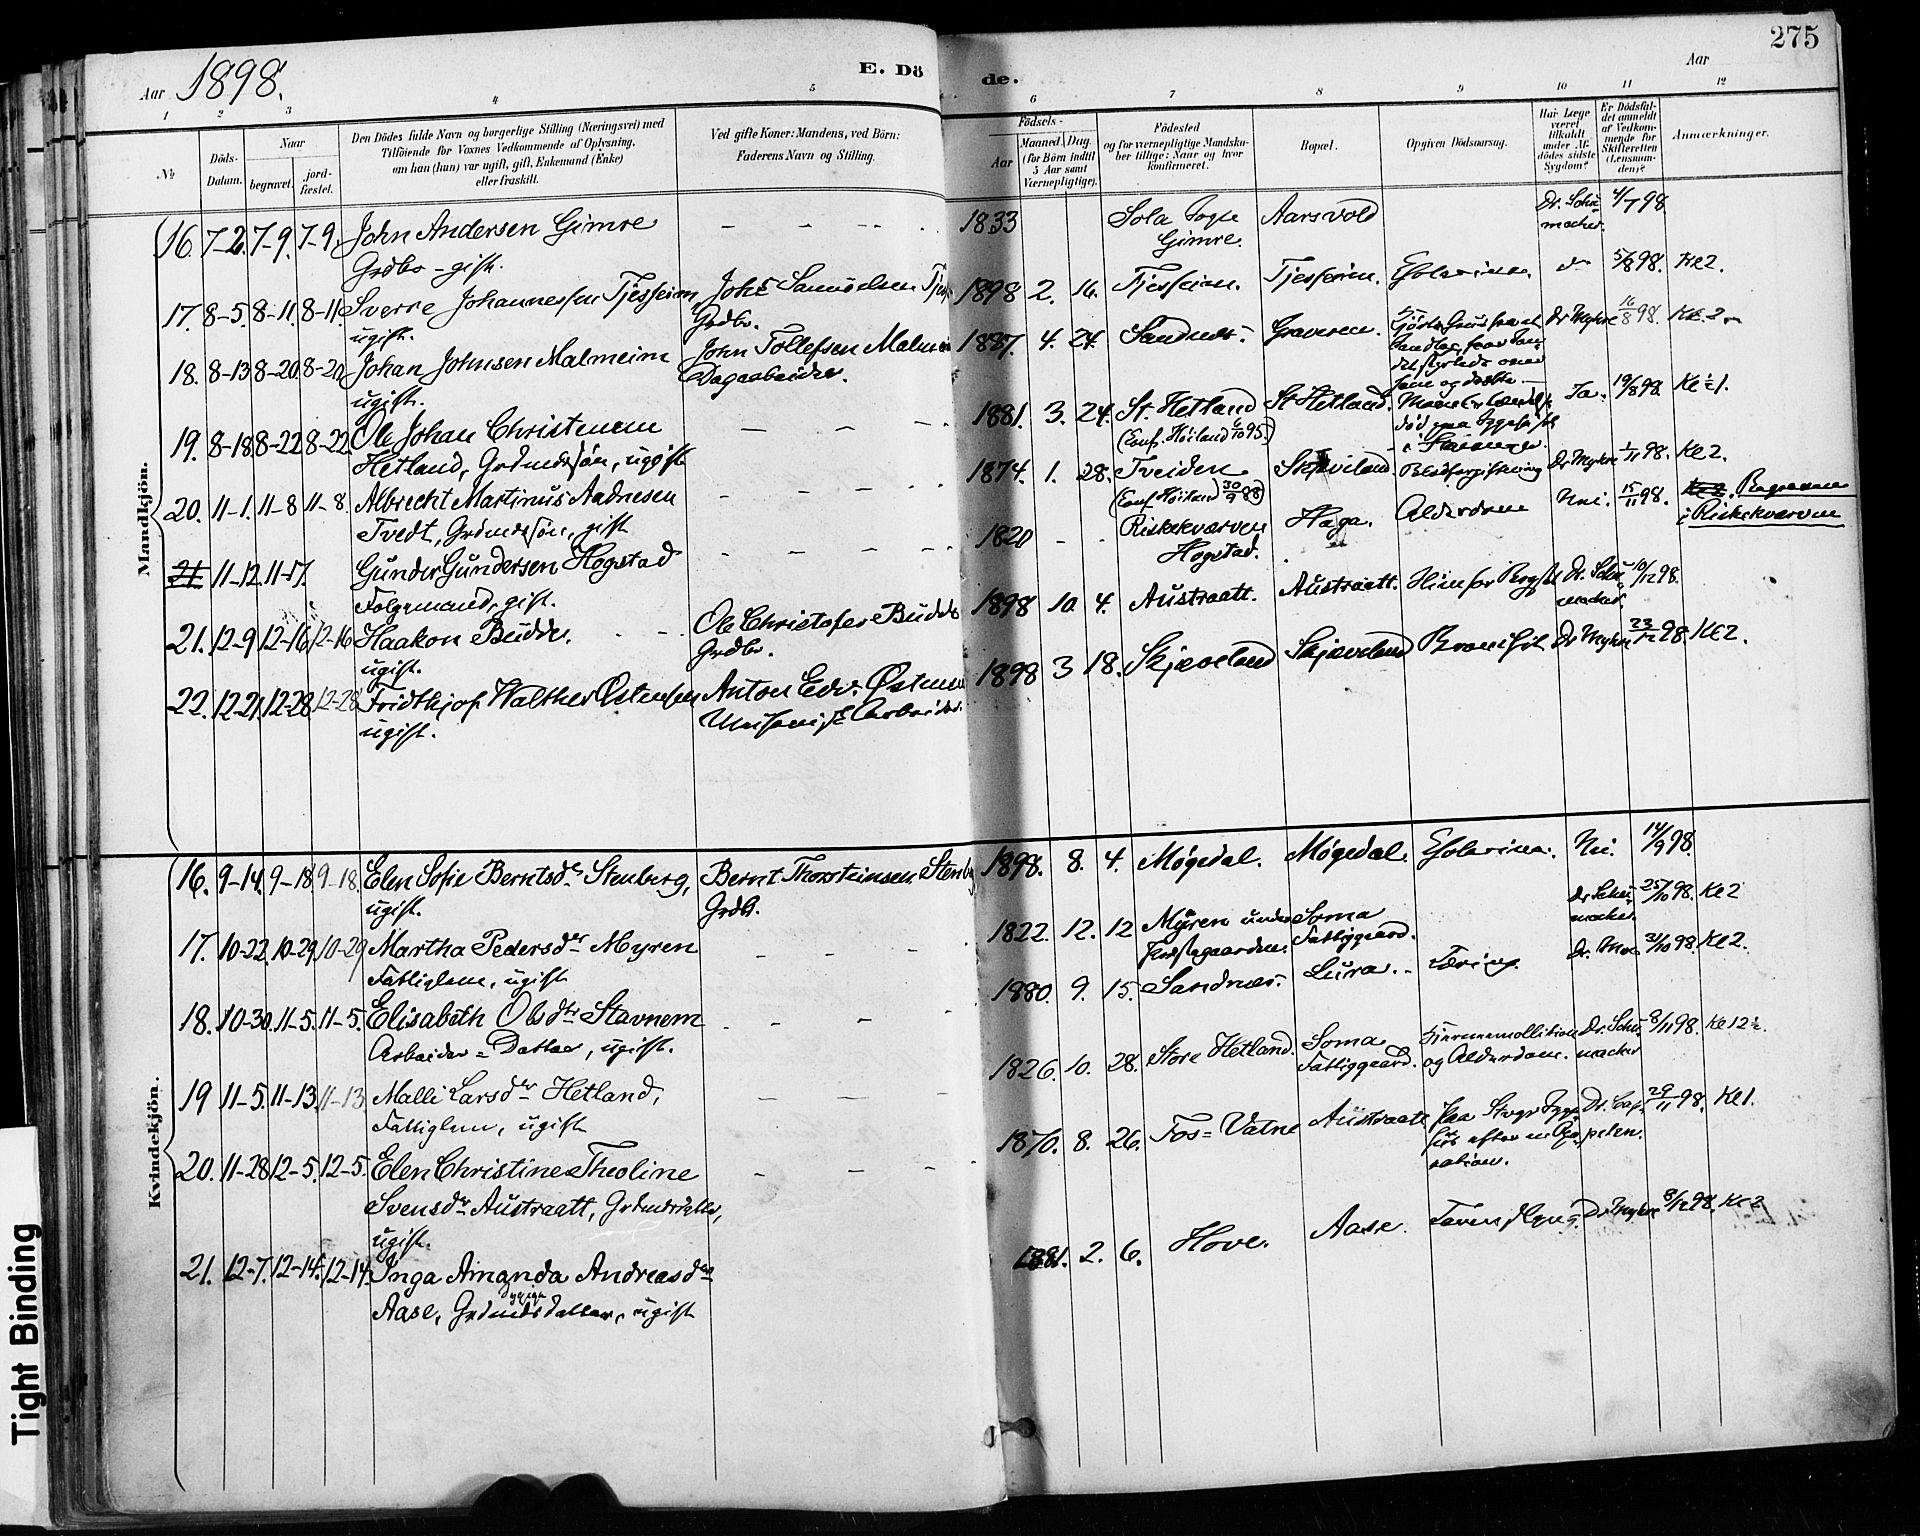 275
Aar 1898. E. Dö de. Aar
1 2 3 4 5 6 7 8 9 10 11 12
№ Döds-Datum. Naar begravet. jord-fæstet. Den Dödes fulde Navn og borgerlige Stilling (Næringsvei) med Tilföiende for Voxnes Vedkommende af Oplysning, om han (hun) var ugift, gift, Enkemand (Enke) eller fraskilt. Ved gifte Koner: Mandens, ved Börn: Faderens Navn og Stilling. Födsels- Aar Maaned. Dag. (for Börn indtil 5 Aar samt Værnepligtige). Födested og for værnepligtige Mandskaber tillige: Naar og hvor konfirmeret. Bopæl. Opgiven Dödsaarsag. Har Læge været tilkaldt under Afdödes sidste Sygdom? Er Dödsfaldet anmeldt af Vedkommende for Skifteretten (Lensmanden)? Anmærkninger.
Mandkjön.
16. 7-2. 7-9. 7-9. John Andersen Gimre - - - - 1833 Sola Sogn Aarsvold Dr. Schu 4/7 98
Grdbr - gift. Gimre. macher.
17. 8-5. 8-11. 8-11. Sverre Johannessen Tjessheim Johs Samuelsen 1898 2. 16. Tjesheim. Tjesheim. 5/8 98. Kl 2.
ugift. Grdbr.
18. 8-13 8-20 8-20 Johan Johnsen Malmeim John Tollefsen Malmeim 1887. 4. 24. Sandnes. Graveren. Dr Myhre 16/8 98. Kl. 2
ugift. Dagarbeider.
19. 8-18 8-22 8-22 Ole Johan Christensen - - - - 1881. 3. 24. St. Hetland St Hetland. Ja. 19/8 98. Kl 1.
Hetland, Grdmdssön, ugift (Conf. Höiland 6/10 95.)
20. 11-1. 11-8 11-8. Albrecht Martinus Aadnesen - - - - 1874. 1. 28. Tveiden Skjæveland. Blodforgiftning Dr Myhre 1/11 98. Kl 2.
Tvedt, Grdmdssön, gift (Conf. Höiland 30/9 88)
21 11-12 11-17. Gunder Gundersen Hogstad - - - - 1820 - - Riskekværven Haga. Alderdom Nei. 15/11 98. Kl 2. Begraven
Folgemand, gift. Hogstad. i Riskekværven
21. 12-9 12-16 12-16 Haakon Budde. - - Ole Christofer Budde 1898 10. 4. Austraatt. Austraatt. Dr. Schu 10/12 98.
ugift. Grdbr. macher.
22. 12-21. 12-28 12-28 Fridthjof Walther Østensen Anton Edv. Østensen 1898 3 18. Skjæveland Skjæveland Dr Myhre 23/12 98. Kl 2.
ugift. Arbeider.
Kvindekjön.
16. 9-14. 9-18. 9-18. Elen Sofie Berntsdr Stenberg, Bernt Thorsteinsen Stenberg 1898. 8. 4. Møgedal. Møgedal. Nei. 14/9 98.
ugift. Grdb.
17. 10-22. 10-29. 10-29 Martha Pedersdr Myren - - - 1822. 12. 12 Myren under Soma Dr Schumacher. 25/10 98. Kl 2
Fattiglem, ugift Fattiggaard.
18. 10-30. 11-5. 11-5. Elisabeth Olsdtr Stavnem - - - - 1880. 9. 15. Sandnæs. Lura. Tæring. Dr. Moe 31/10 98. Kl 2.
Arbeider=Datter, ugift.
19 11-5. 11-13. 11-13 Malli Larsdtr Hetland, - - - - 1826. 10. 28. Store Hetland. Soma Dr. Schu 8/11 98. Kl 12½.
Fattiglem, ugift Fattiggaard. og Alderdom. macher
20. 11-28 12-5. 12-5. Elen Christine Theoline - - - - 1870. 8. 26. Fos=Vatne Austraatt Dr. Cap 29/11 98. Kl 1.
Svensdr Austraatt, Grdmdsdatter, pelen.
ugift.
21. 12-7. 12-14. 12-14. Inga Amanda Andreasdtr 1881. 2. 6. Hove. Aase. Dr Myhre 8/12 98. Kl 2
Aase, Grdmdsdatter, ugift
Tight Binding